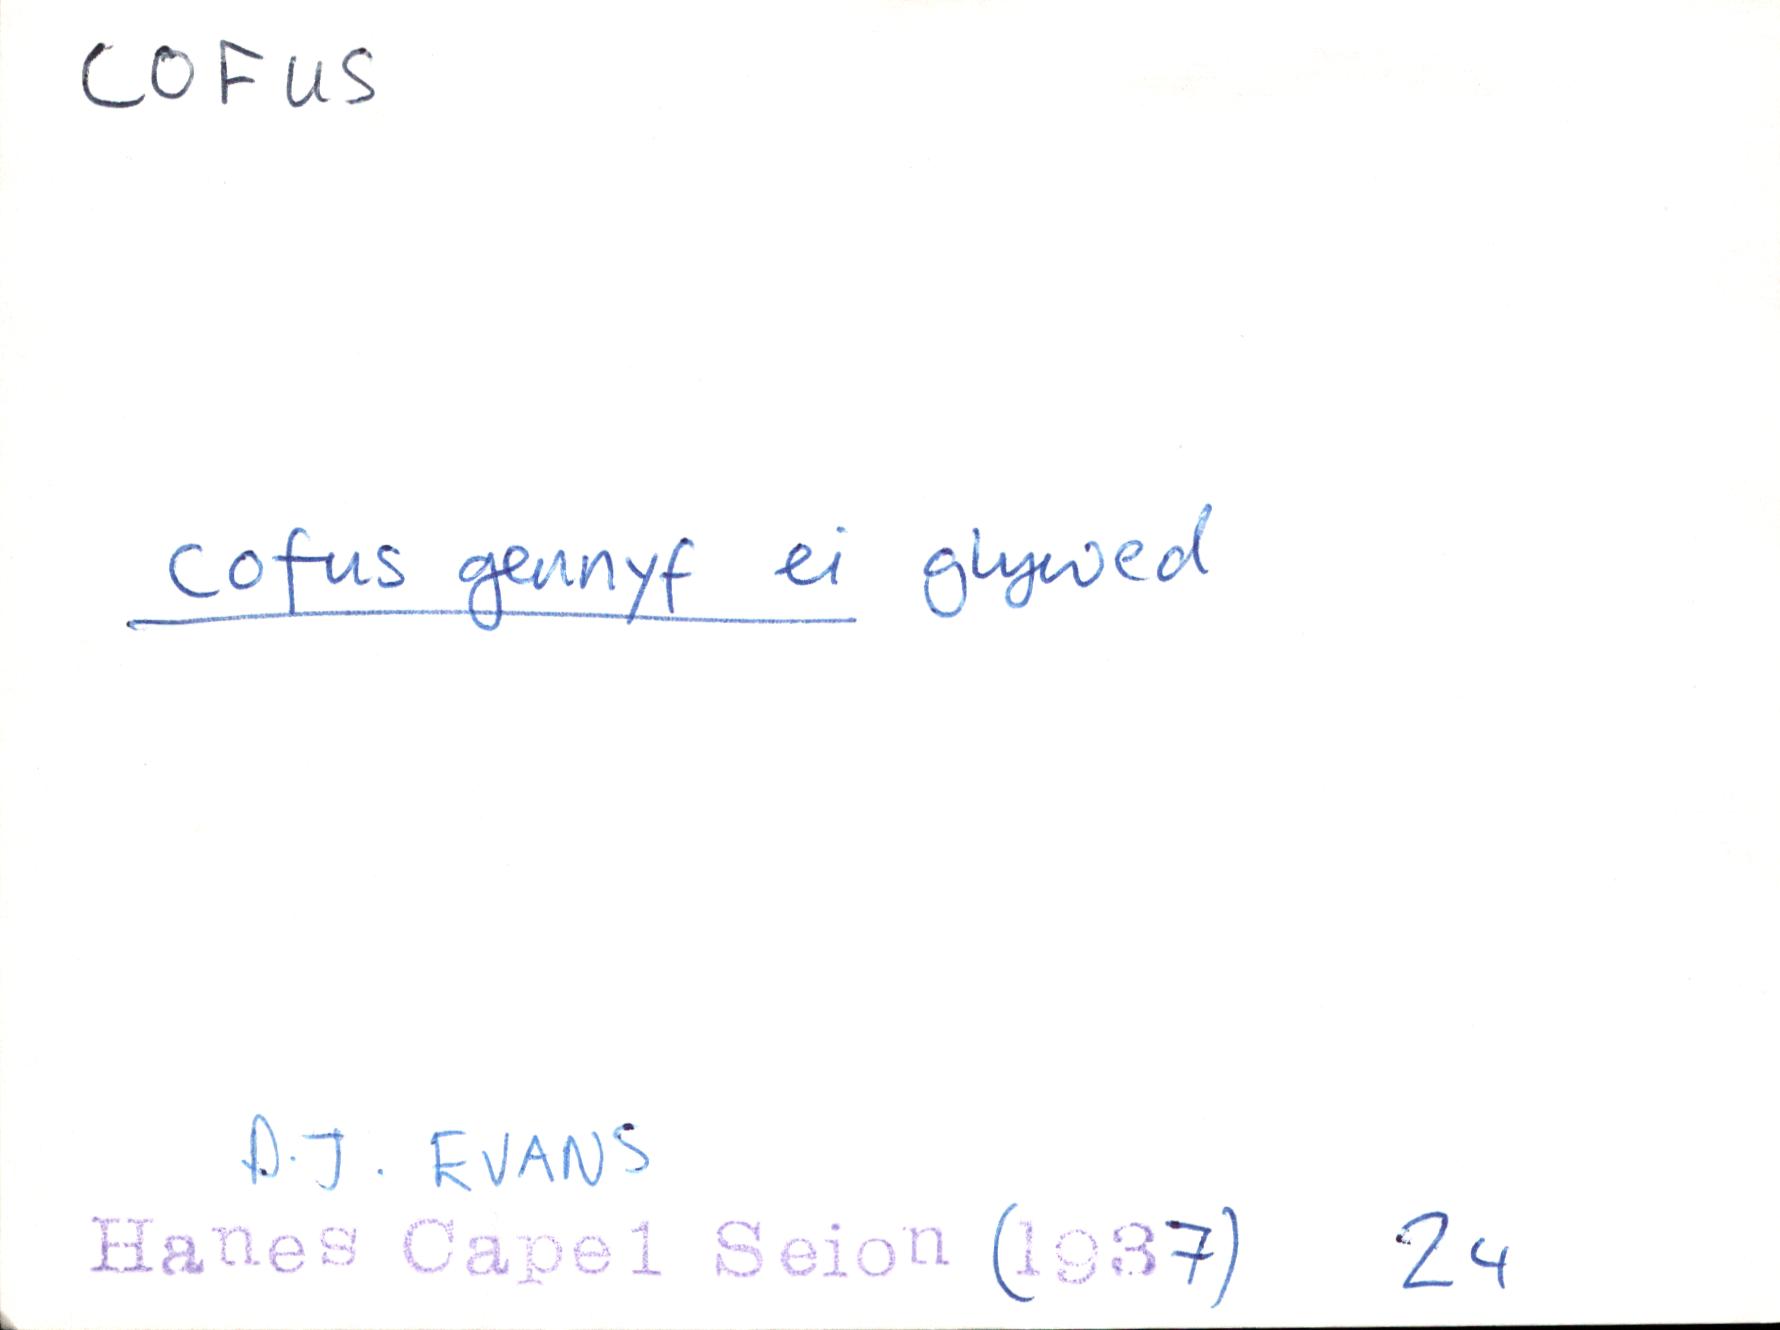 COFUS
cofus gennyf ei glywed
D.J. EVANS
Hanes Capel Seion (1937) 24